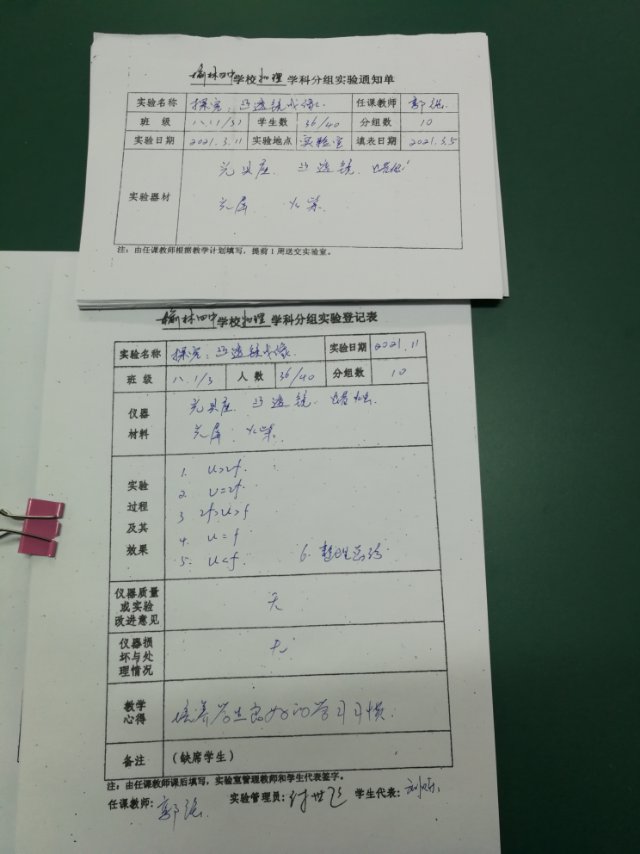 榆林四中学校物理学科分组实验通知单
实验名称 探究:凸透镜成像 任课教师 郭强
班级 八.1/3) 学生数 36/40 分组数 10
实验日期 2021.3.11 实验地点 实验室 填表日期 2021.3.5
实验器材 光具座 凸透镜 蜡烛
光屏 火柴
注:由任课教师根据教学计划填写,提前1周送交实验室。
榆林四中学校物理学科分组实验登记表
实验名称 探究:凸透镜成像 实验日期 2021.11
班级 八.1/3 人数 36/40 分组数 10
仪器材料 光具座 凸透镜 蜡烛
光屏 火柴
实验过程及其效果
1. u>2f
2. u=2f
3 2f>u>f
4. u=f
5. u<f 6.整理器材
仪器质量或实验改进意见 无
仪器损坏与处理情况 无
教学心得 培养学生良好的学习习惯
备注 (缺席学生)
注:由任课教师课后填写,实验室管理教师和学生代表签字。
任课教师:郭强 实验管理员:付世飞 学生代表:刘